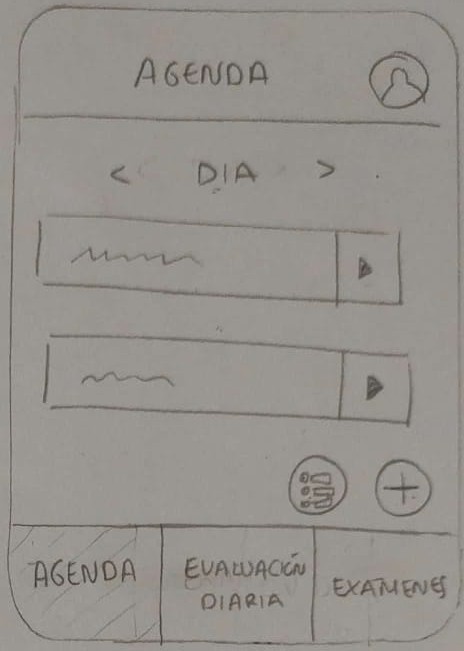 AGENDA
< DIA >
AGENDA
EVALUACIÓN
DIARIA
EXAMENES